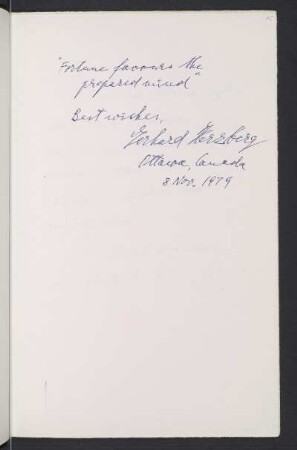 "Fortune favours the
prepared mind"
Best wishes,
Gerhard Herzberg
Ottawa, Canada
8 Nov. 1979